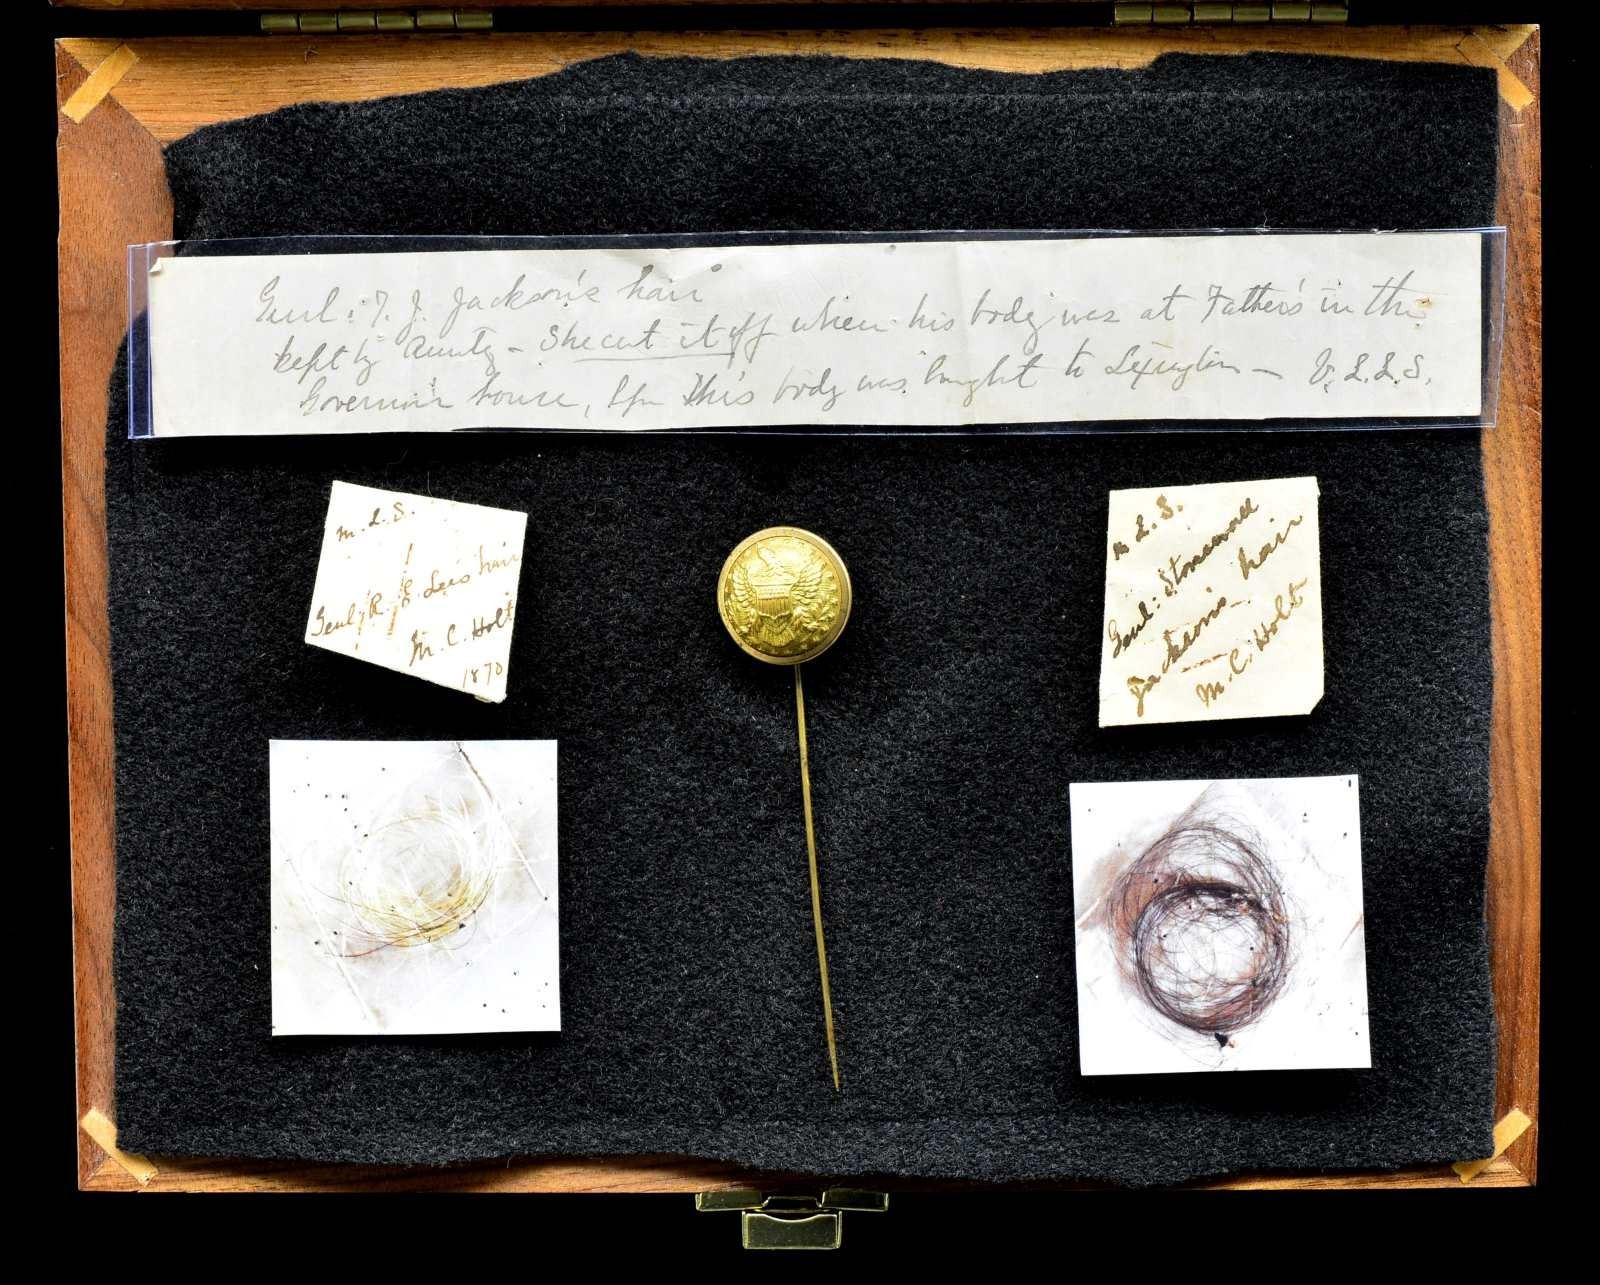 Genl: T. J. Jackson's hair
kept by Aunty - She cut it off when his body was at Father's in the
Governor's house, before his body was brought to Lexington - V. L. L. S.
M. L. S.
Genl R. E. Lee's hair
M. C. Holt
1870
L. S.
Genl: Stonewall
Jackson's hair
M. C. Holt